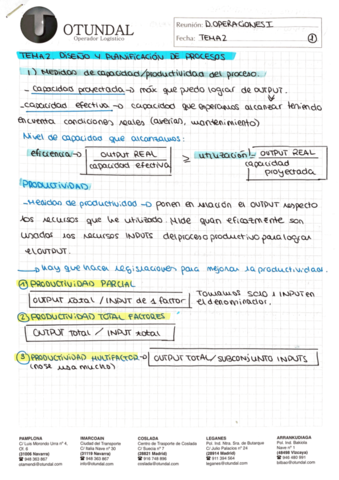 OTUNDAL
Operador Logístico
Reunión: D.OPERACIONES I
Fecha: TEMA 2
①
TEMA 2. DISEÑO Y PLANIFICACIÓN DE PROCESOS
1) MEDIDAS de capacidad/productividad del proceso.
- capacidad proyectada → máx que puedo lograr de OUTPUT.
- capacidad efectiva → capacidad que esperamos alcanzar teniendo
en cuenta condiciones reales (averías, mantenimiento)
Nivel de capacidad que alcanzamos:
eficiencia → OUTPUT REAL / capacidad efectiva ≥ utilización: OUTPUT REAL / capacidad proyectada
PRODUCTIVIDAD
- Medidas de productividad → ponen en relación el OUTPUT respecto
los recursos que he utilizado. Mide quan eficazmente son
usados los recursos INPUTS del proceso productivo para lograr
el OUTPUT.
→ hay que hacer legislaciones para mejorar la productividad.
① PRODUCTIVIDAD PARCIAL
OUTPUT total / INPUT de 1 factor
Tomamos SOLO 1 INPUT en
el denominador.
② PRODUCTIVIDAD TOTAL FACTORES
OUTPUT total / INPUT total
③ PRODUCTIVIDAD MULTIFACTOR → OUTPUT TOTAL / SUBCONJUNTO INPUTS
(no se usa mucho)
PAMPLONA
C/ Luis Morondo Urra nº 4,
Of. 6
(31006 Navarra)
IMARCOAIN
Ciudad del Transporte
C/ Italia Nave nº 30
(31119 Navarra)
COSLADA
Centro de Trasporte de Coslada
C/ Suecia nº 7
(28821 Madrid)
coslada@otundal.com
LEGANES
Pol. Ind. Ntra. Sra. de Butarque
C/ Julio Palacios nº 24
(28914 Madrid)
leganes@otundal.com
ARRANKUDIAGA
Pol. Ind. Bakiola
Nave nº 1
(48498 Vizcaya)
bilbao@otundal.com
info@otundal.com